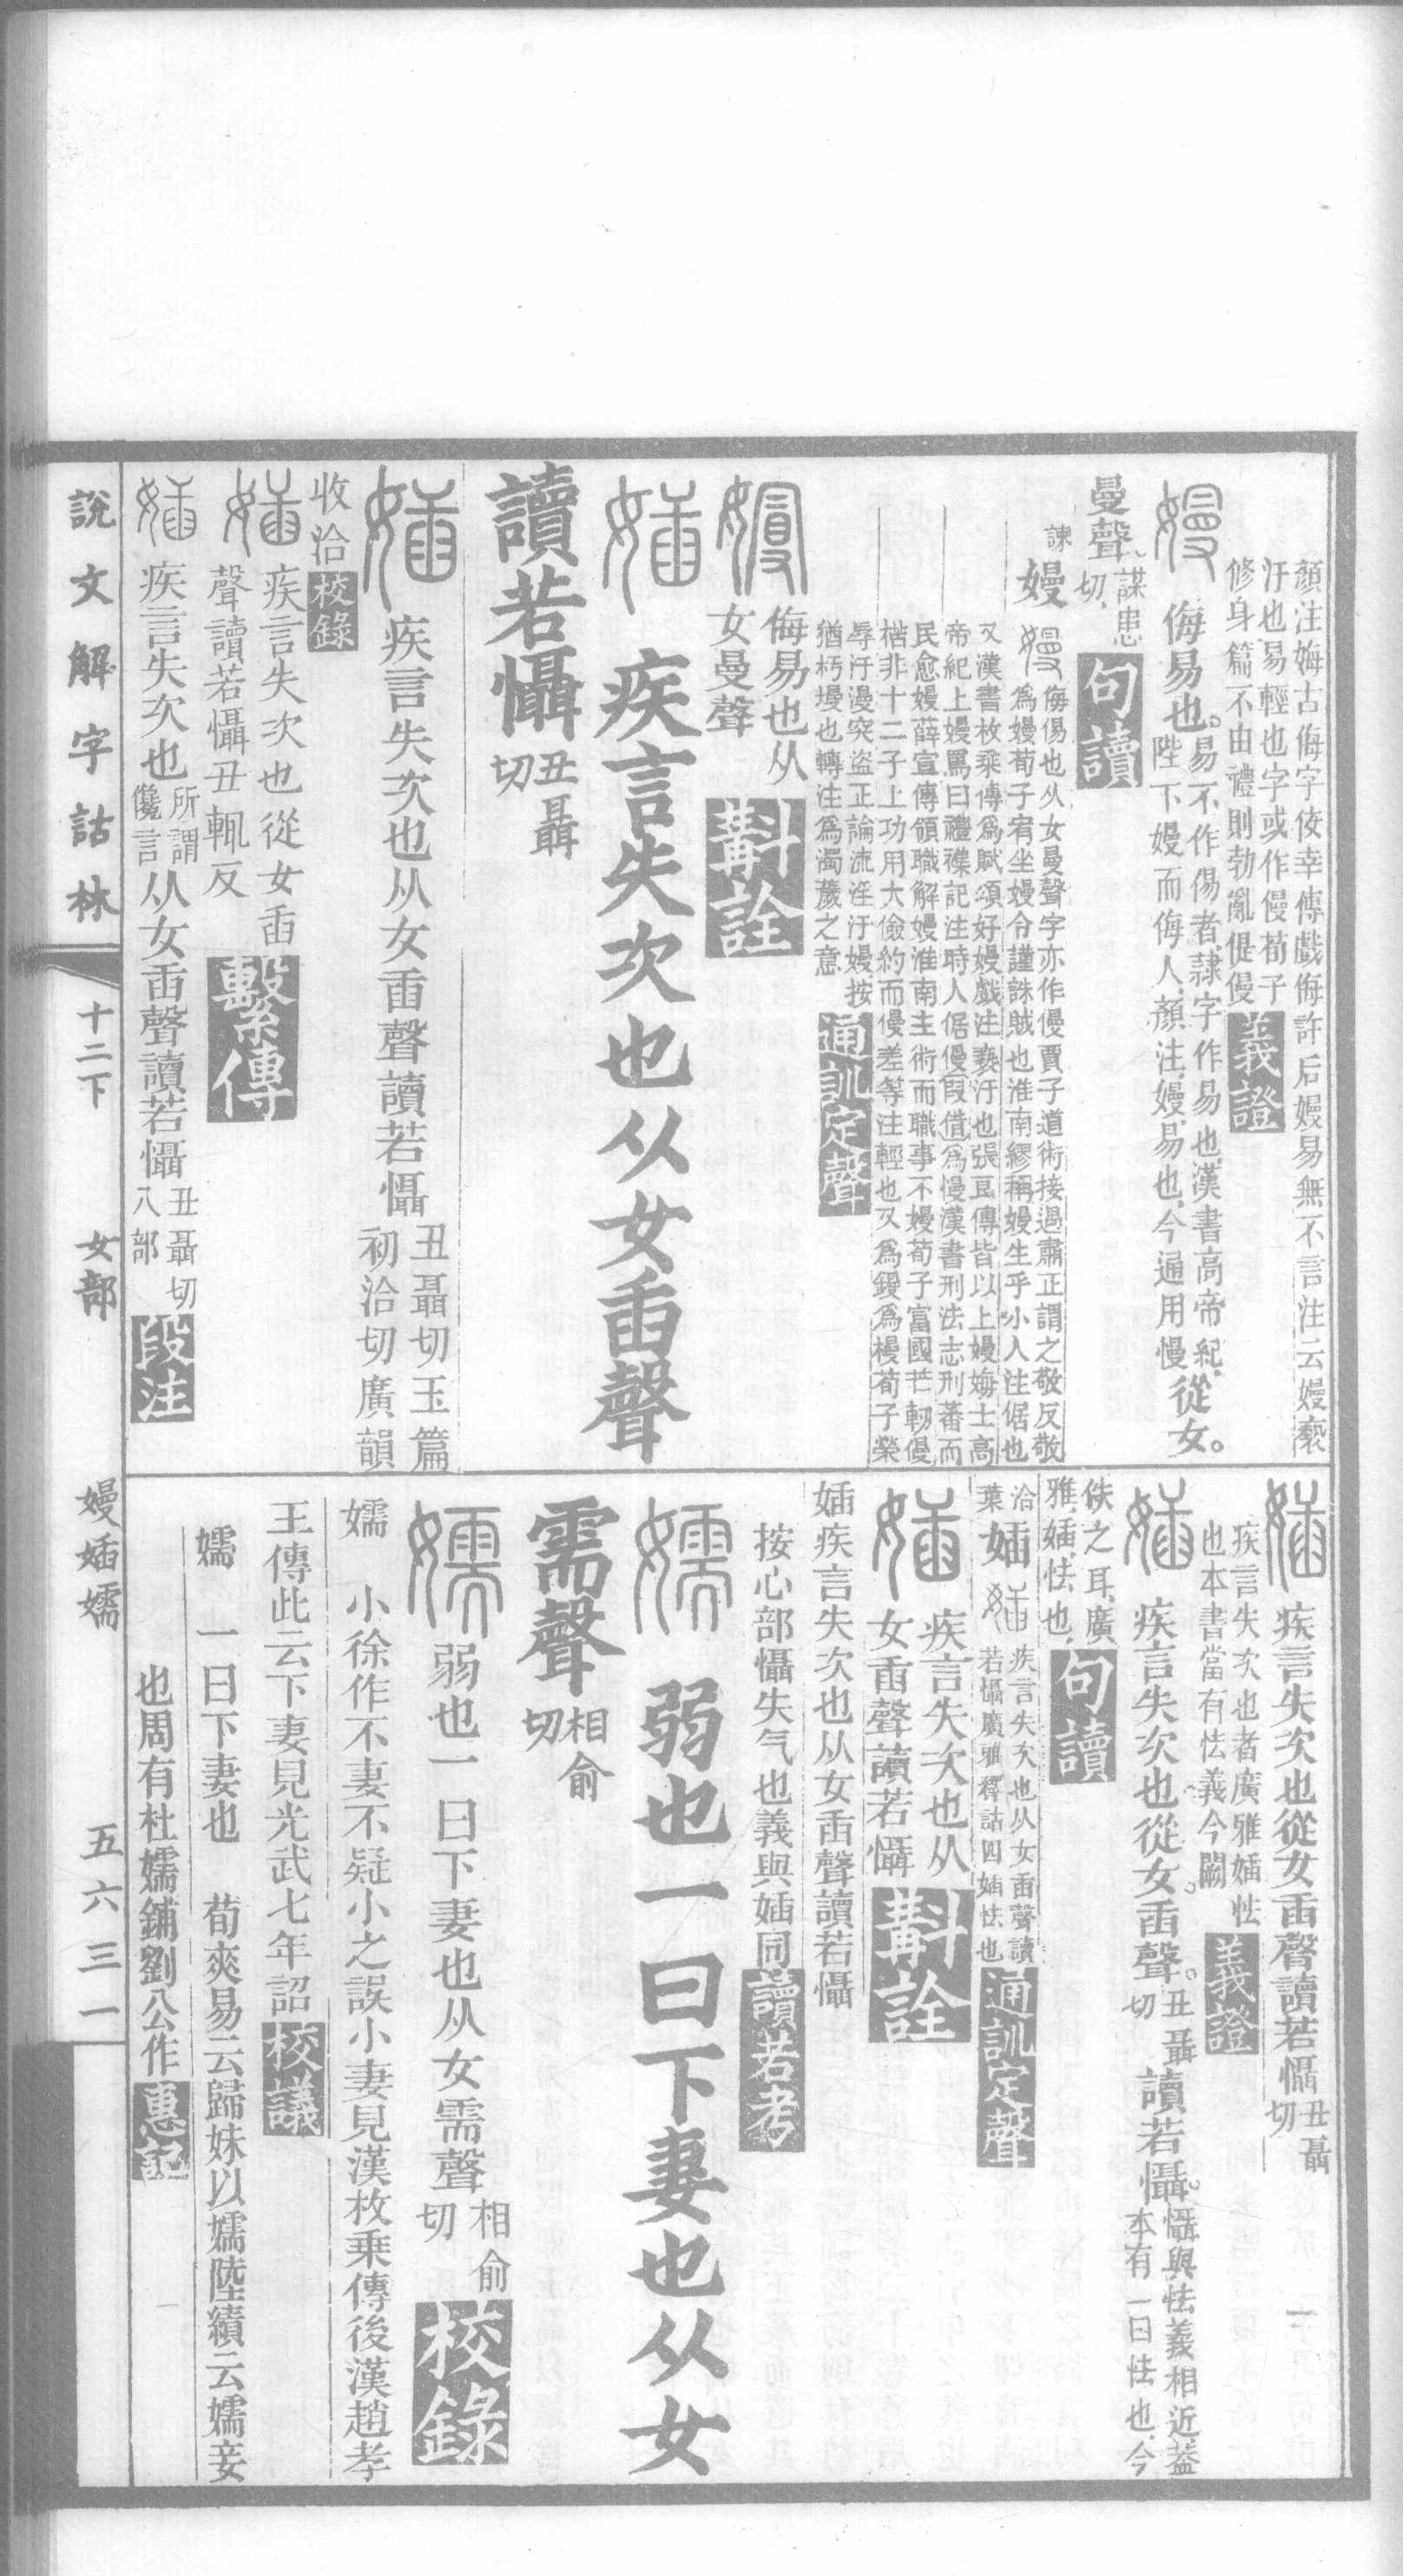 顏注娒古侮字佞幸傳戲侮許后嫚易無不言注云嫚褻
汙也易輕也字或作僈荀子
修身篇不由禮則勃亂偍僈
義證
嫚
侮易也。
易不作傷者、隷字作易也、漢書高帝紀、
陛下嫚而侮人、顏注、嫚、易也、今通用慢
從女。
曼聲、
謀患切、
句讀
諫
嫚
嫚
侮傷也从女曼聲字亦作僈賈子道術接遇肅正謂之敬反敬
爲嫚荀子宥坐嫚令謹誅賊也淮南繆稱嫚生乎小人注倨也
又漢書枚乘傳爲賦頌好嫚戲注褻汙也張良傳皆以上嫚娒士高
帝紀上嫚罵曰禮襍記注時人倨僈叚借爲慢漢書刑法志刑蕃而
民愈嫚薛宣傳領職解嫚淮南主術而職事不嫚荀子富國芒軔僈
楛非十二子上功用大儉約而僈差等注輕也又爲鏝爲槾荀子榮
辱汙漫突盜正論流淫汙嫚按
猶朽墁也轉注爲濁薉之意
通訓定聲
嫚
侮易也从
女曼聲
斠詮
婳
疾言失次也从女臿聲
讀若懾
丑聶切
㛼
疾言失次也从女臿聲讀若懾
丑聶切玉篇
初洽切廣韻
收洽
校錄
㛼
疾言失次也從女臿
聲讀若懾丑輒反
繫傳
㛼
疾言失次也
所謂
儳言
从女臿聲讀若懾
丑聶切
八部
段注
㛼
疾言失次也從女臿聲讀若懾
丑聶切
疾言失次也者廣雅㛼怯
也本書當有怯義今闕
義證
㛼
疾言失次也從女。臿聲。
丑聶切
讀若懾。
懾與怯義相近、蓋
本有一曰怯也、今
佚之耳、廣
雅、㛼、怯也、
句讀
洽
葉
㛼
㛼
疾言失次也从女臿聲讀
若懾廣雅釋詁四㛼怯也
通訓定聲
㛼
疾言失次也从
女臿聲讀若懾
斠詮
㛼疾言失次也从女臿聲讀若懾
按心部懾失气也義與㛼同
讀若考
嬬
弱也一曰下妻也从女
需聲
相俞切
嬬
弱也一曰下妻也从女需聲
相俞切
校錄
嬬 小徐作不妻不疑小之誤小妻見漢枚乘傳後漢趙孝
王傳此云下妻見光武七年詔
校議
嬬 一曰下妻也 荀爽易云歸妹以嬬陸績云嬬妾
也周有杜嬬鋪劉公作
惠記
說文解字詁林
十二下
女部
嫚㛼嬬
五六三一